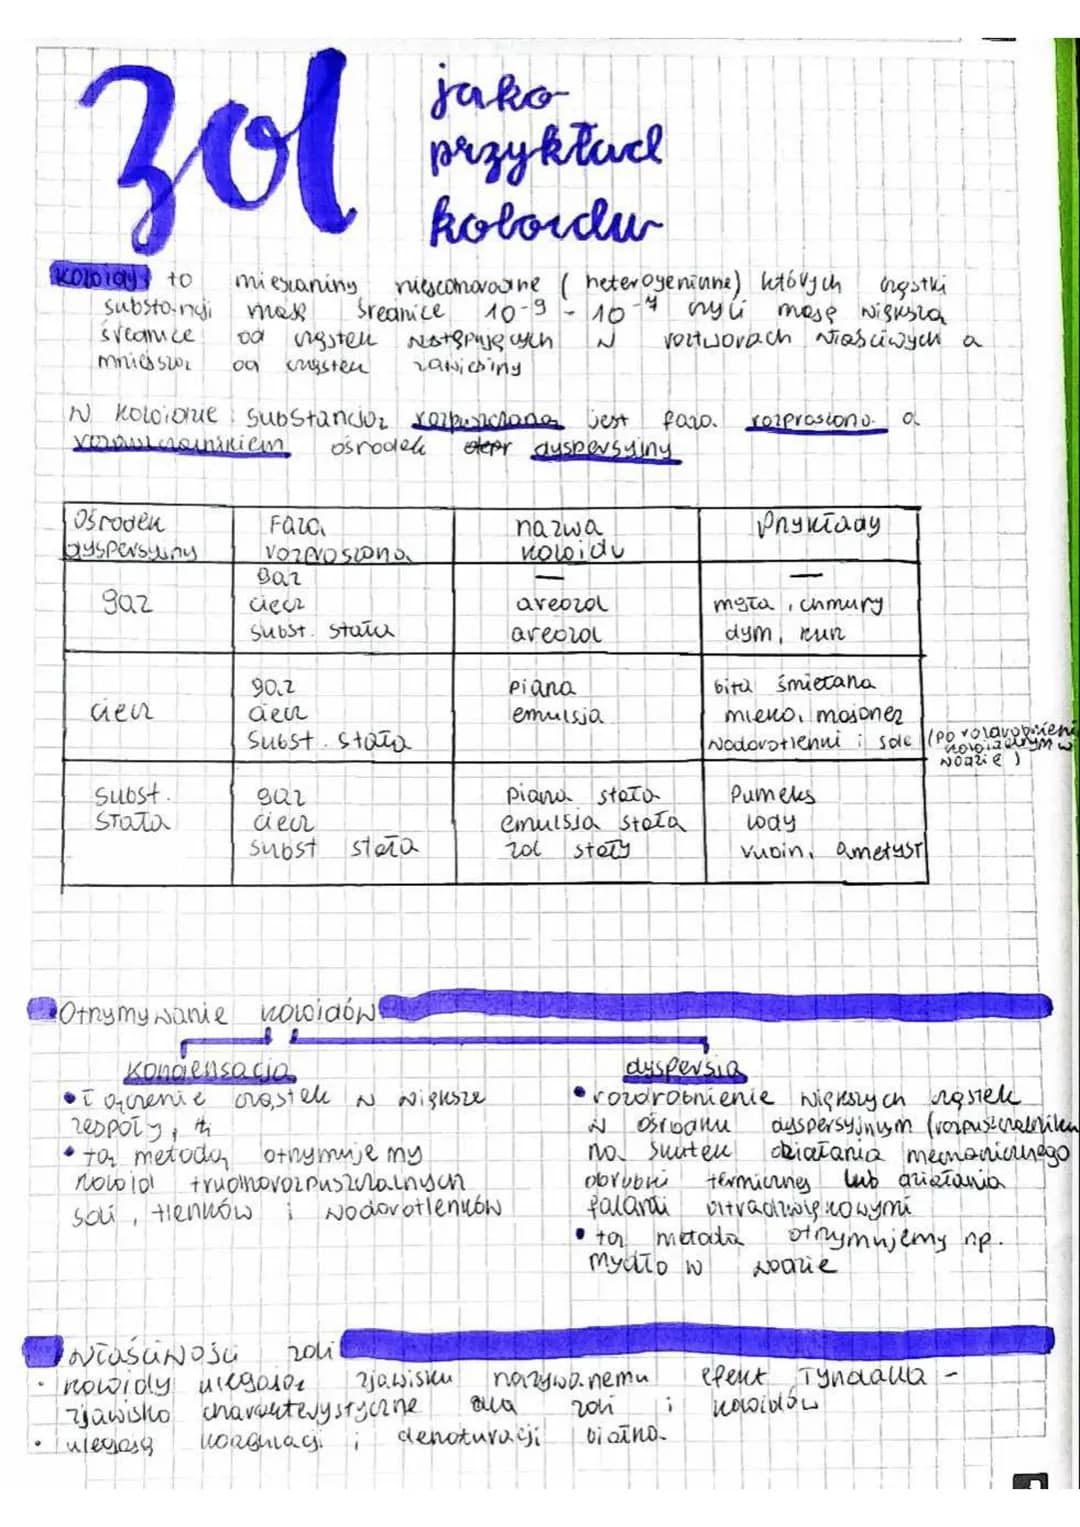 zol
jako
przykład
koloidu
Koloidy to mieszaniny niejednorodne (heterogeniczne) których cząstki
substancji mają średnicę 10-9 - 10-7 czyli mają większą
średnicę od cząstek występujących w roztworach właściwych a
mniejszą od cząstek zawiesiny
W koloidzie substancją rozpuszczaną jest faza rozproszona a
rozpuszczalnikiem ośrodek dyspersyjny
Ośrodek dyspersyjny
Faza rozproszona
nazwa koloidu
Przykłady
gaz
gaz — —
ciecz areozol mgła, chmury
subst. stała areozol dym, kurz
ciecz
gaz piana bita śmietana
ciecz emulsja mleko, majonez
subst. stała wodorotlenki i sole (po rozdrobnieniu koloidalnym w wodzie)
subst. stała
gaz piana stała Pumeks
ciecz emulsja stała lody
subst stała zol stały rubin, ametyst
Otrzymywanie koloidów
kondensacja
• łączenie cząstek w większe
zespoły,
• tą metodą otrzymujemy
koloid trudnorozpuszczalnych
soli, tlenków i wodorotlenków
dyspersja
• rozdrobnienie większych cząstek
w ośrodku dyspersyjnym (rozpuszczalniku
na skutek działania mechanicznego
obróbki termicznej lub działania
falami ultradźwiękowymi
• tą metodą otrzymujemy np.
mydło w wodzie
Właściwości zoli
• koloidy ulegają zjawisku nazywanemu efekt Tyndalla -
zjawisko charakterystyczne dla zoli i koloidów
• ulegają koagulacji i denaturacji białka.